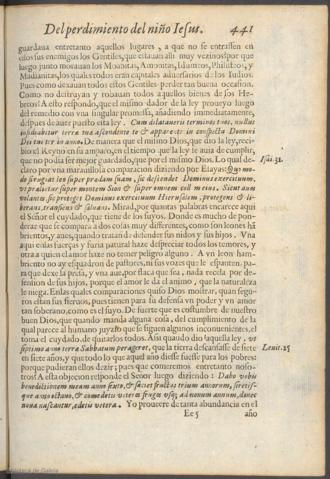 Del perdimiento del niño Iesus. 441
guardaua entretanto aquellos lugares, a que no se entrassen en
ellos sus enemigos los Gentiles, que estauan alli muy vezinos: por que
luego junto morauan los Moabitas, Amonitas, Idumeos, Philisteos, y
Madianitas, los quales todos eran capitales aduersarios de los Iudios.
Pues como dexauan todos estos Gentiles perder tan buena occasion,
Como no destruyan y robauan todos aquellos bienes de los He-
breos? A esto respondo, que el mismo dador de la ley proueyo luego
del remedio con vna singular promessa, añadiendo immediatamente,
despues de auer puesto esta ley. Cum dilataueris terminos tuos, nullus
insidiabitur terræ tuæ ascendente te & apparente in conspectu Domini
Dei tui ter in anno. De manera que el mismo Dios, que dio la ley, reci-
bio el Reyno en su amparo, en el tiempo que la ley le auia de cumplir,
que no podia ser mejor guardado, que por el mismo Dios. Lo qual de-
claro por vna marauillosa comparacion diziendo por Elayas: Quo mo-
do si rugiat leo super prædam suam, sic descendet Dominus exercituum,
vt prælietur super montem Sion & super omnem collem eius. Sicut aues
volantes sic proteget Dominus exercituum Hierusalem, protegens & li-
berans, transiens & saluans. Mirad, por quantas palabras encarece aqui
el Señor el cuydado, que tiene de los suyos. Donde es mucho de pon-
derar que se compara a dos cosas muy differentes, como son leones hā
brientos, y aues, quando tratan de defender sus nidos y sus hijos. Vna
aqui estas fuerças y furia natural haze despreciar todos los temores, y
otra a quien el amor haze no temer peligro alguno. A vn leon ham-
briento no ay esquadron de pastores, ni sus vozes que le espanten, pa-
ra que dexe la presa, y vna aue, por flaca que sea, nada recela por de-
fension de sus hijos, porque el amor le da el animo, que la naturaleza
le niega. Enlas quales comparaciones quiso Dios mostrar, quan segu-
ros estan sus sieruos, pues tienen para su defensa vn poder y vn amor
tan soberano, como es el suyo. De fuerte que es costumbre de nuestro
buen Dios, que quando manda alguna cosa, del cumplimiento de la
qual parece al humano juyzio que se siguen algunos inconuenientes, el
toma el cuydado de quitarlos todos. Assi quando dio aquella ley, vt
septimo anno terra Sabbatum perageret, que la tierra descansasse de siete
en siete años, y que todo lo que aquel año diesse fuesse para los pobres:
porque pudieran ellos dezir; pues que comeremos entretanto noso-
tros? A esta objecion responde el Señor luego diziendo: Dabo vobis
benedictionem meam anno sexto, & faciet fructus trium annorum, seretis-
que anno octauo, & comedetis veteres fruges vsq; ad nonum annum, donec
noua nascantur, edetis vetera. Yo proueere de tanta abundancia en el
Ee 5 año
Isai. 31.
Leuit. 25
Biblioteca de Galicia